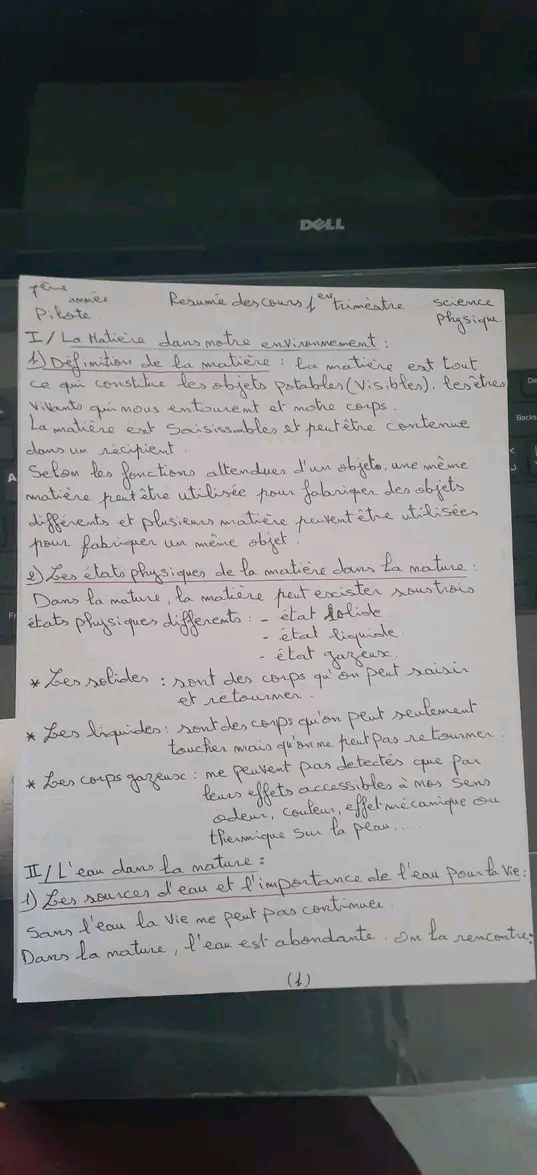 DELL
7ème année Pilote
Resumé des cours 1er trimèstre
science Physique.
I/ La Matière dans notre environnement :
1) Définition de la matière : la matière est tout
ce qui constitue les objets potables (Visibles), les êtres
vivants qui nous entourent et notre corps.
La matière est saisissables et peut être contenue
dans un récipient.
Selon les fonctions attendues d'un objets, une même
matière peut être utilisée pour fabriquer des objets
différents et plusieurs matière peuvent être utilisées
pour fabriquer un même objet.
2) Les états physiques de la matière dans la nature :
Dans la nature, la matière peut exister sous trois
états physiques différents : - état solide.
- état liquide.
- état gazeux.
* Les solides : sont des corps qu'on peut saisir
et retourner.
* Les liquides : sont des corps qu'on peut seulement
toucher mais qu'on ne peut pas retourner.
* Les corps gazeux : ne peuvent pas detectés que par
leurs effets accessibles à nos sens
odeur, couleur, effet mécanique ou
thermique sur la peau.....
II/ L'eau dans la nature :
1) Les sources d'eau et l'importance de l'eau pour la vie :
Sans l'eau la vie ne peut pas continuer.
Dans la nature, l'eau est abondante. On la rencontre:
(1)